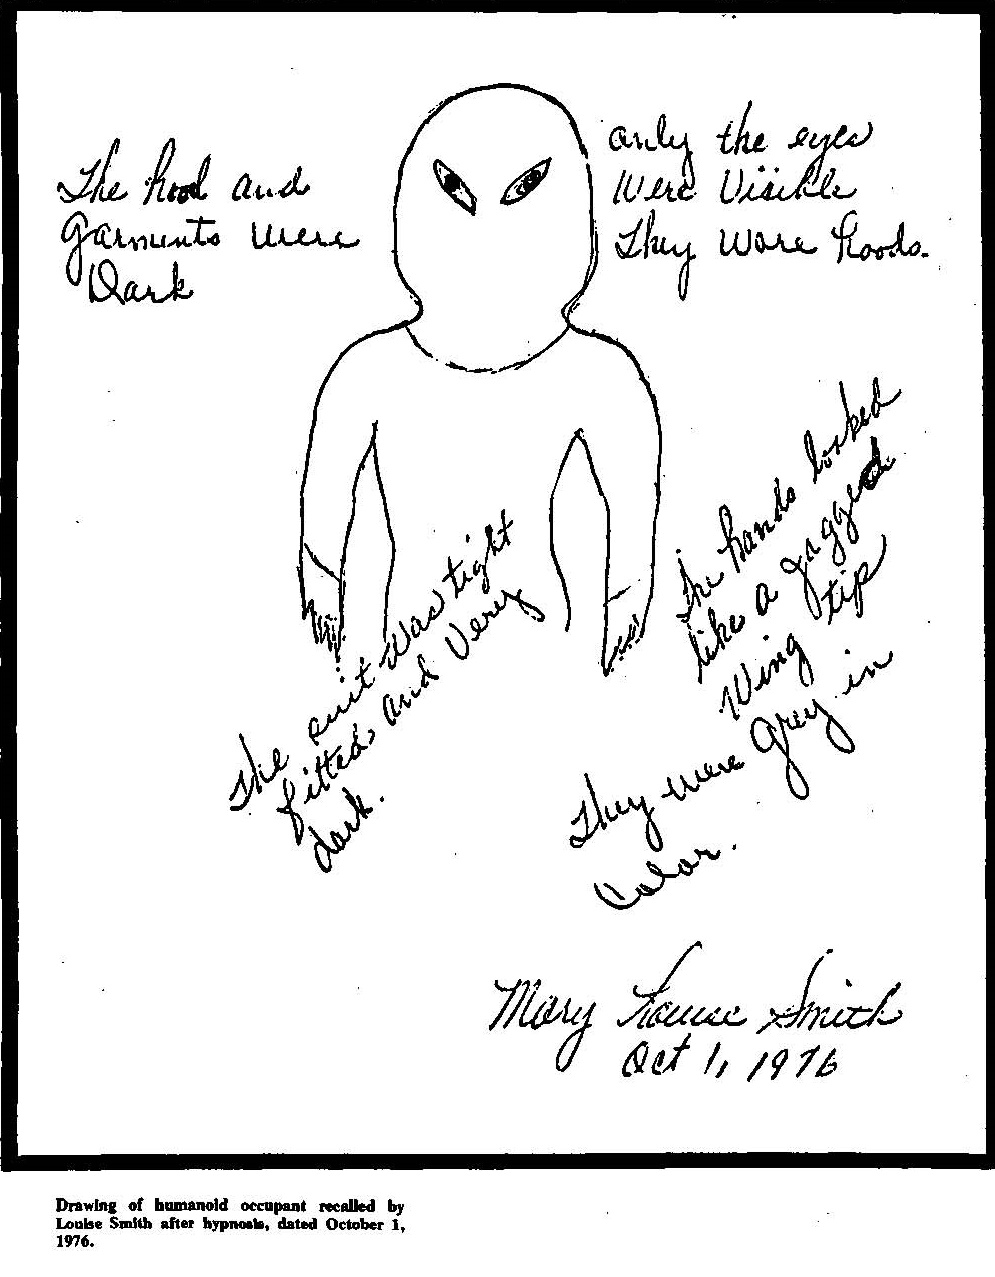 The hood and
garments were
Dark
only the eyes
Were Visible
They wore hoods.
The suit was tight
fitted, and Very
dark.
The hands looked
like a jagged
Wing tip
They were Grey in
Color.
Mary Louise Smith
Oct 1, 1976
Drawing of humanoid occupant recalled by
Louise Smith after hypnosis, dated October 1,
1976.